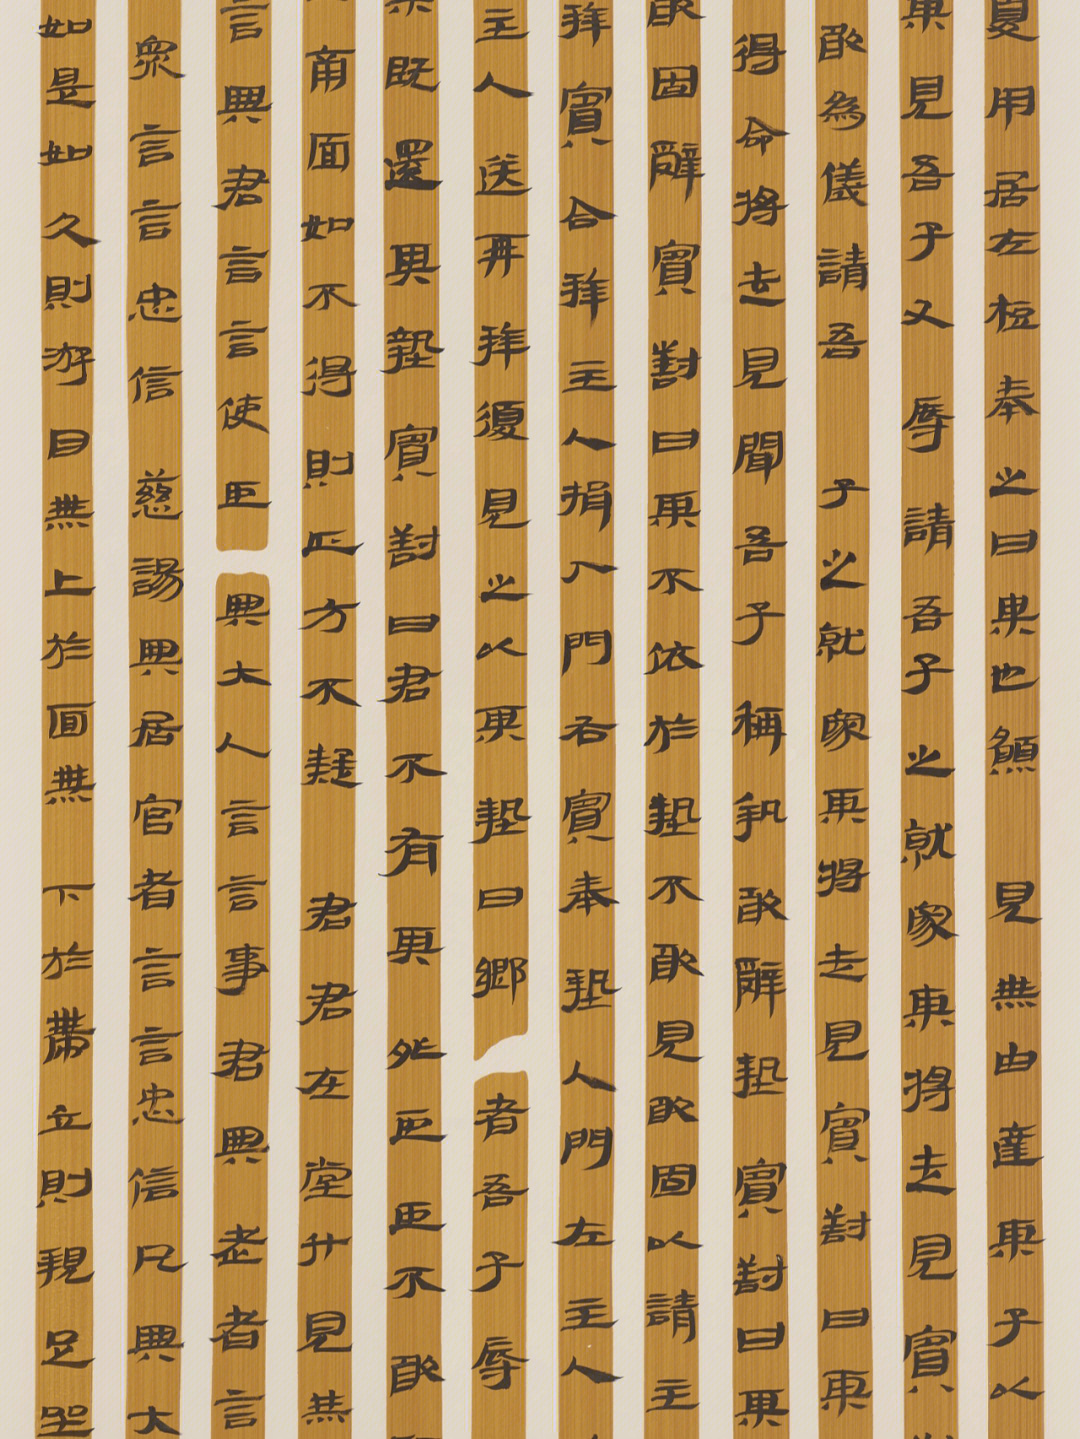 夏用居左梪奉之曰某也願見無由達某子以
某見吾子又辱請吾子之就家某將走見賓對
敢為儀請吾子之就家某將走見賓對曰某
得命將走見聞吾子稱執敢辭墊賓對曰某
敢固辭賓對曰某不依於墊不敢見敢固以請主
拜賓合拜主人揖入門右賓奉墊入門左主人
主人送再拜復見之以其墊曰鄉者吾子辱
某既還其墊賓對曰君不有其外臣臣不敢
南面如不得則正方不疑君君在堂升見無
言與君言言使臣與大人言言事君與老者言
眾言言忠信慈諹與居官者言言忠信凡與大
如是如父則游目無上於面無下於帶立則視足坐